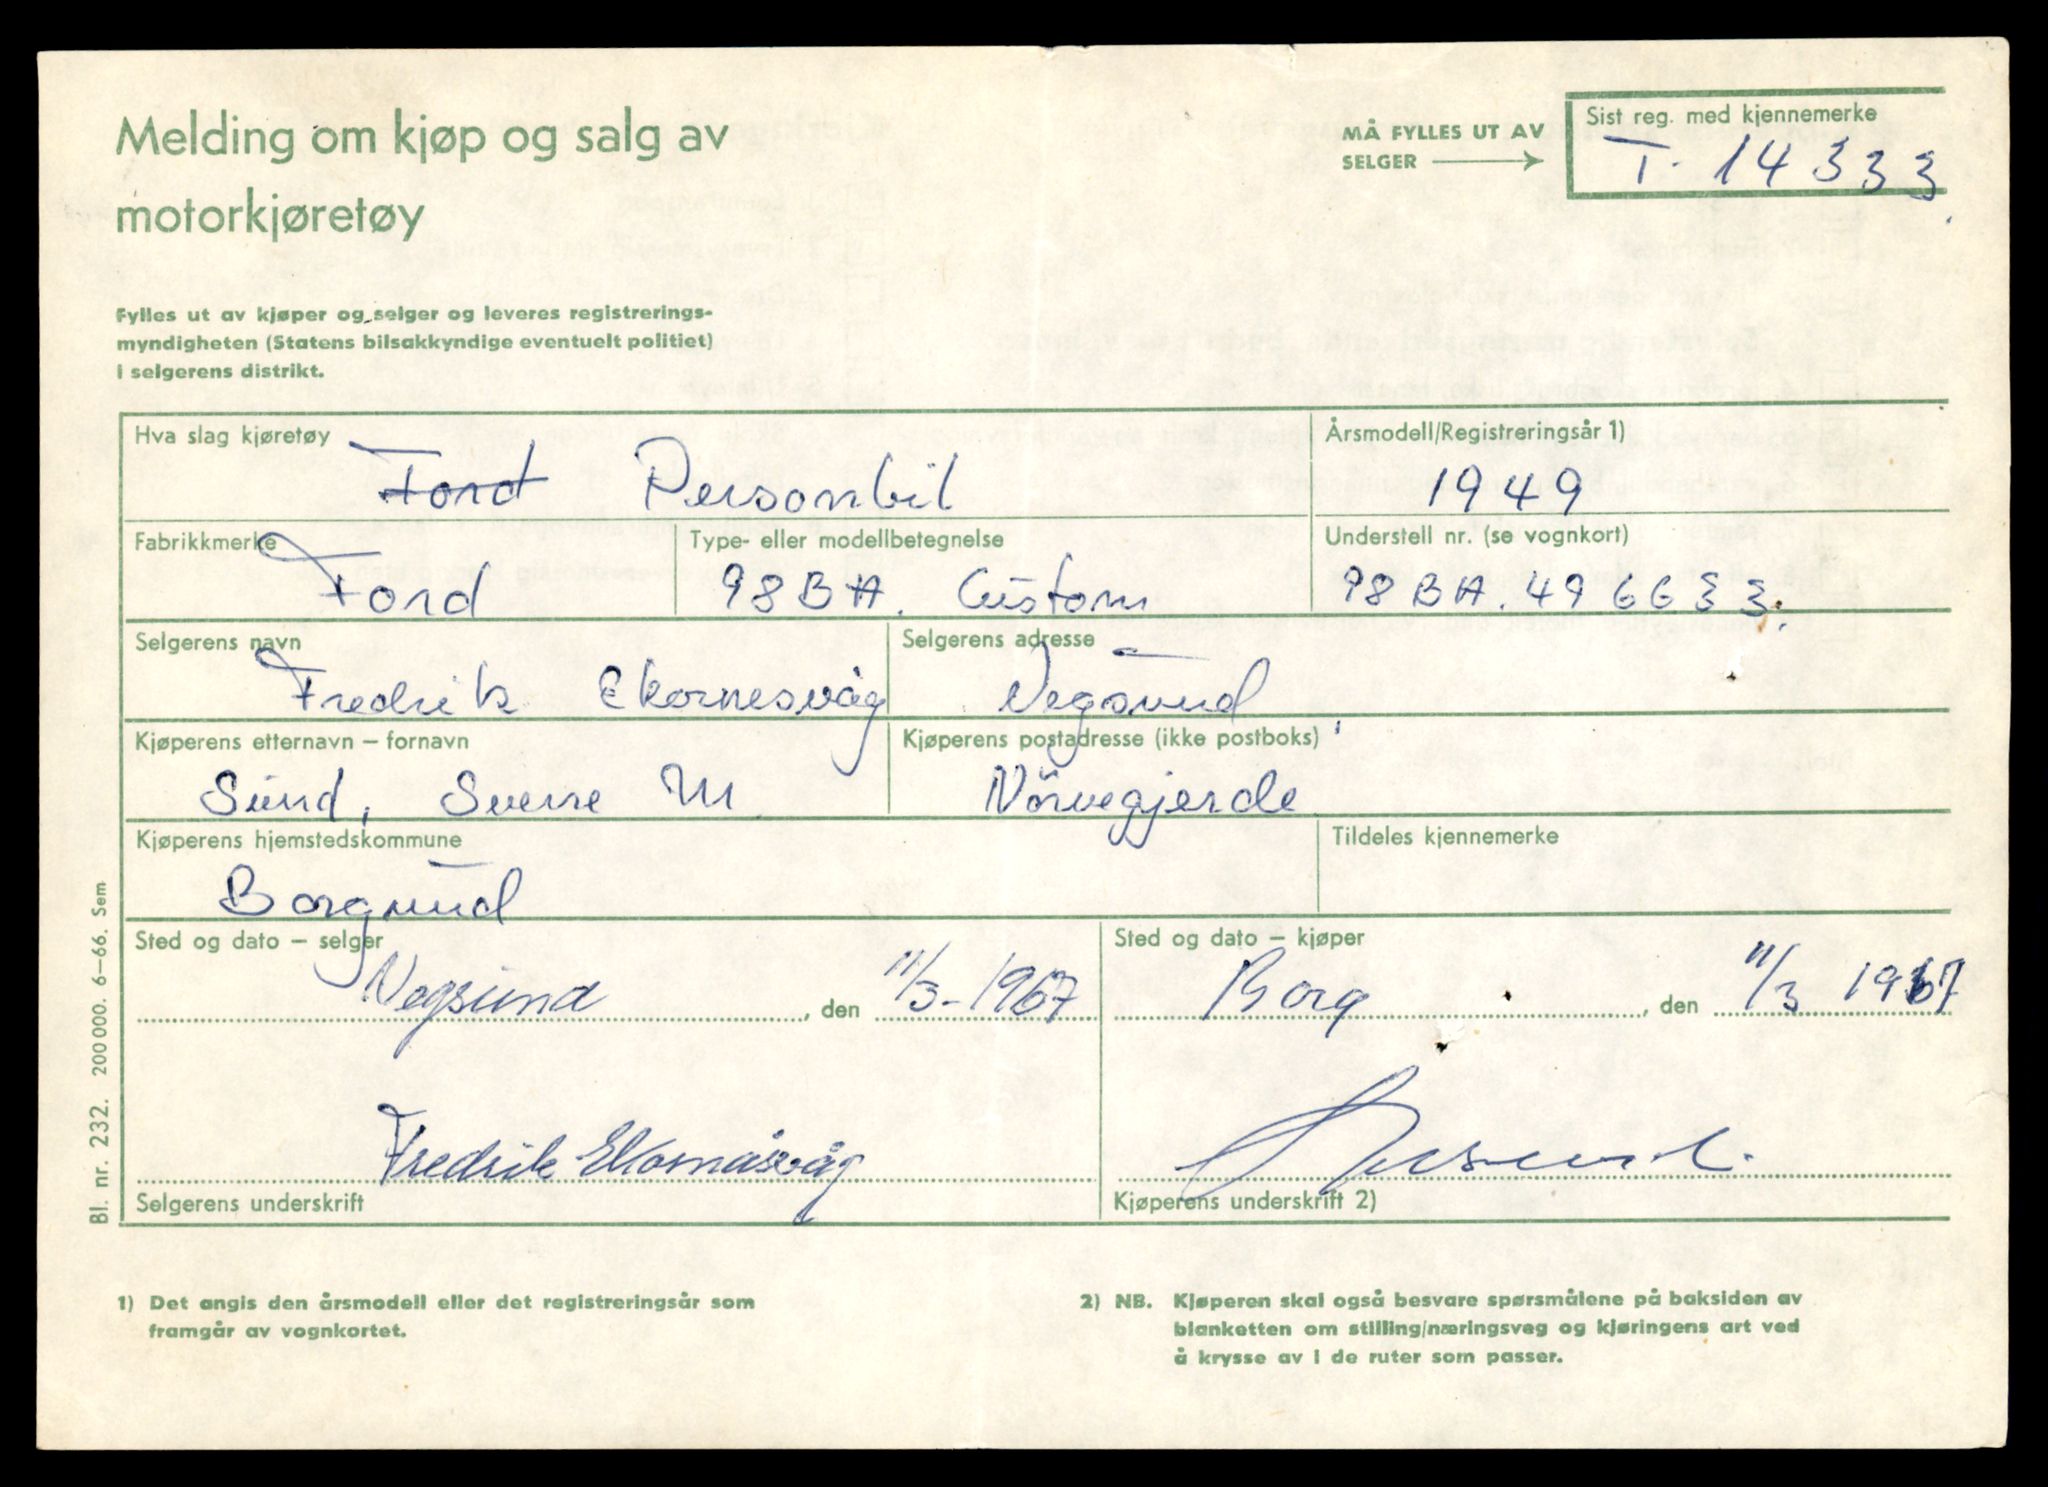 Melding om kjøp og salg av
motorkjøretøy
MÅ FYLLES UT AV
SELGER
Sist reg. med kjennemerke
T- 14333
Fylles ut av kjøper og selger og leveres registrerings-
myndigheten (Statens bilsakkyndige eventuelt politiet)
i selgerens distrikt.
Hva slag kjøretøy
Ford Personbil
Årsmodell/Registreringsår 1)
1949
Fabrikkmerke
Ford
Type- eller modellbetegnelse
98BA. Custom
Understell nr. (se vognkort)
98BA.496633.
Selgerens navn
Fredrik Ekornesvåg
Selgerens adresse
Vegsund,
Kjøperens etternavn – fornavn
Sund, Sverre M
Kjøperens postadresse (ikke postboks)
Nörvegjerde
Kjøperens hjemstedskommune
Borgund
Tildeles kjennemerke
Sted og dato – selger
Vegsund, den 11/3-1967
Sted og dato – kjøper
Borg, den 11/3 1967
Fredrik Ekornåsvåg
Selgerens underskrift
Kjøperens underskrift 2)
Bl. nr. 232. 200 000. 6–66. Sem
1) Det angis den årsmodell eller det registreringsår som
framgår av vognkortet.
2) NB. Kjøperen skal også besvare spørsmålene på baksiden av
blanketten om stilling/næringsveg og kjøringens art ved
å krysse av i de ruter som passer.